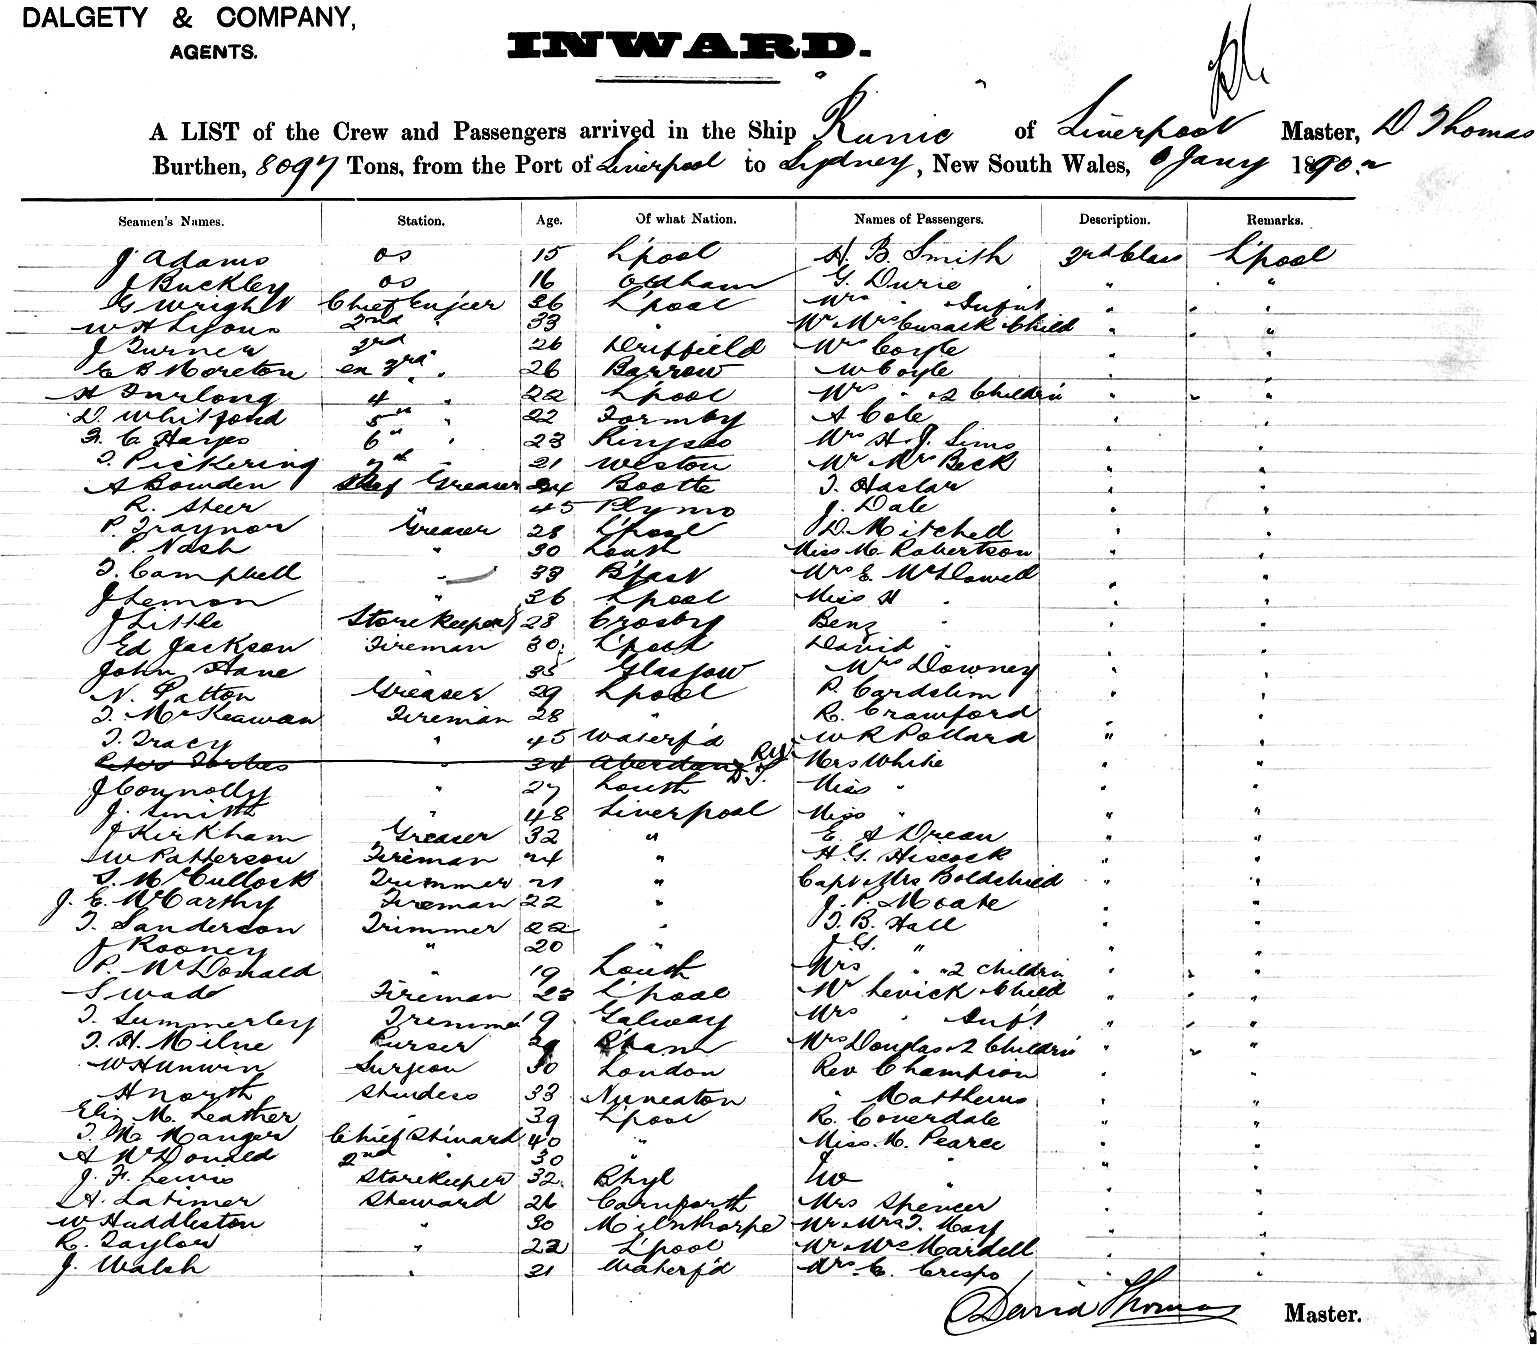 DALGETY & COMPANY,
AGENTS.
INWARD.
A LIST of the Crew and Passengers arrived in the Ship "Runic" of Liverpool Master, D Thomas
Burthen, 8097 Tons, from the Port of Liverpool to Sydney, New South Wales, Jany 1890
Seamen's Names. Station. Age. Of what Nation. Names of Passengers. Description. Remarks.
J Adams OS 15 L'pool H. B. Smith 3rd Class L'pool
J Buckley OS 16 Oldham G. Durie " "
G Wright Chief Engieer 36 L'pool Mrs " Infnt " "
W H Lyons 2nd " 33 " Mr Mrs Cusack Child " "
J Turner 3rd 26 Driffield Mrs Coyle " "
E B Moreton en 3rd " 26 Barrow W Coyle " "
H Furlong 4 " 22 L'pool Mrs " 2 Childrn " "
D. Whitford 5th " 22 Formby A Cole " "
F. C Hayes 6th " 23 Mrs H. J. Sims " "
T. Pickering 7th " 21 Weston Mr Mrs Beck " "
A Bowden Greaser 34 Bootle T. Haslar " "
R. Steer " 45 Plymo J. Dale " "
P. Traynor Greaser 28 L'pool D. Mitchell " "
P. Nash " 30 Louth Miss M. Robertson " "
T. Campbell " 33 B'fast Mrs E. McDowell " "
J Lemon " 36 L'pool Miss H " " "
J Little Storekeeper 28 Crosby Benz " " "
Ed Jackson Fireman 30 L'pool David " " "
John Hane " 35 Glasgow Mrs Downey " "
N. Patton Greaser 29 L'pool P. Cardslim " "
T. McKeawan Fireman 28 " R. Crawford " "
T. Tracy " 45 Waterf'd W R Pollard " "
Peter Forbes " 34 Aberdeen D.T. Mrs White " "
J Connolly " 27 Louth Miss " " "
J. Smith " 48 Liverpool Miss " " "
J Kirkham Greaser 32 " E. A Drean " "
W Patterson Fireman 24 " H. G. Hiscock " "
S. McCullock Trimmer 21 " Capt Mrs Boldchild " "
J. E. McCarthy Fireman 22 " J. P. Moate " "
T. Sanderson Trimmer 22 " T. B. Hall " "
J Rooney " 20 " J. G. " " "
P. McDonald " 19 Louth Mrs " 2 Childrn " "
S Wade Fireman 23 L'pool Mr Levick Child " "
T. Summerley Trimmer 9 Galway Mrs " Inf't " "
T. H. Milne Purser 29 B'ham Mrs Douglas 2 Childrn " "
W H Unwin Surgeon 30 London Rev Champion " "
H North 33 Nuneaton " Matthews " "
Eliz M. Leather " 39 L'pool R. Coverdale " "
T. M. Manger Chief Steward 40 " Miss. M. Pearce " "
A McDonald 2nd " 30 " " " "
J. F. Lewis Storekeeper 32 Rhyl " " "
H. Latimer Steward 26 Carnforth Mrs Spencer " "
W Huddleston " 30 Milnthorpe Mr Mrs T. May " "
R. Taylor " 22 L'pool Mr Mrs Mardell " "
J. Walsh " 21 Waterf'd Mrs C. Crespo " "
David Thomas Master.